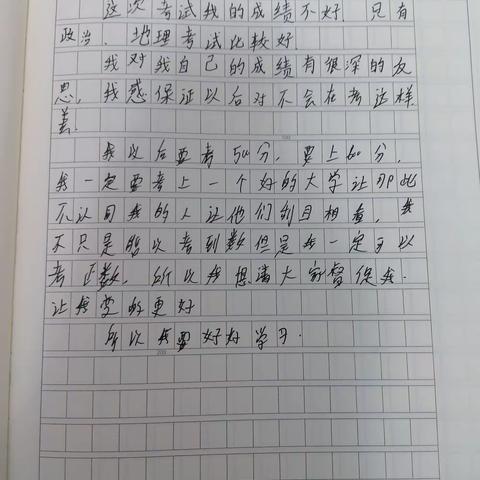 这次考试我的成绩不好 只有
政治、地理考试比较好.
我对我自己的成绩有很深的反
思,我感保证以后对不会在考这样
差.
我以后要考500分,要上600分,
我一定要考上一个好的大学让那些
不认同我的人让他们刮目相看,我
不只是能以考到数但是我一定可以
考正数,所以我想请大家督促我.
让我变的更好
所以我要好好学习.